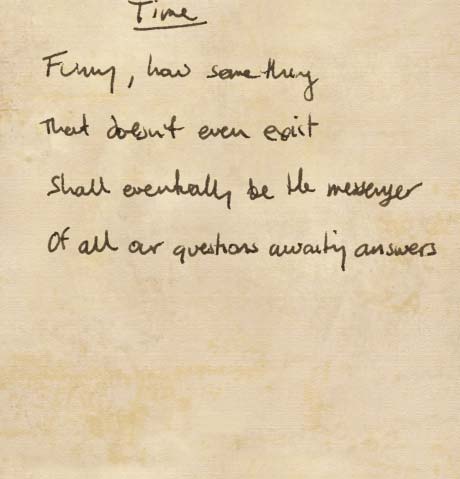 Time
Funny, how something
That doesn't even exist
Shall eventually be the messenger
Of all our questions awaiting answers